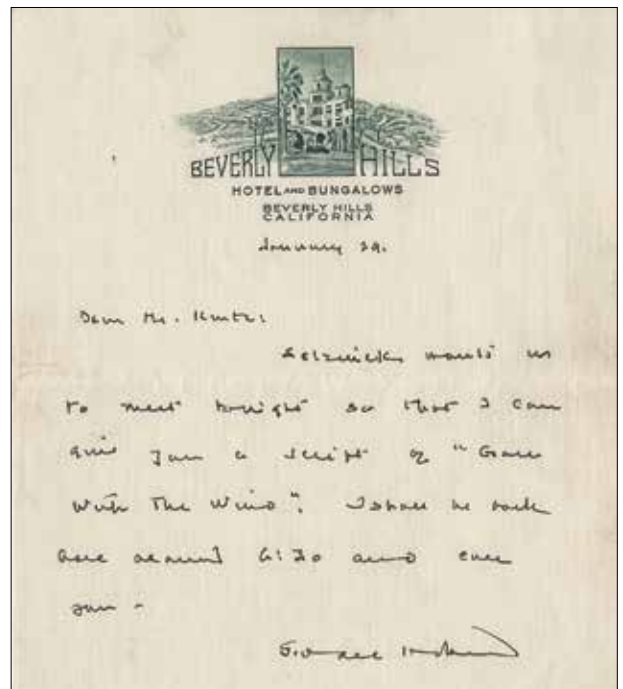 BEVERLY HILLS
HOTEL AND BUNGALOWS
BEVERLY HILLS
CALIFORNIA
January 29.
Dear Mr. Kurtz:
Selznick wants us
to meet tonight so that I can
give you a script of "Gone
With The Wind". I shall be back
here around 6:30 and call
you -